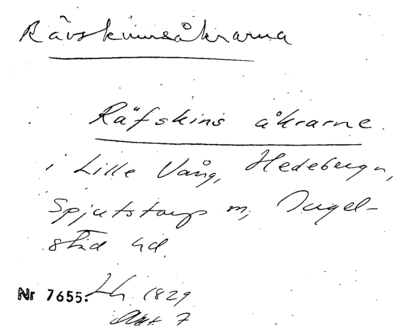 Rävskinnsåkrarna
Räfskins åkrarne.
i Lille Vång, Hedeberga,
Spjutstorps m, Ingel-
stad hd.
Nr 7655. Lh. 1829
Akt 7